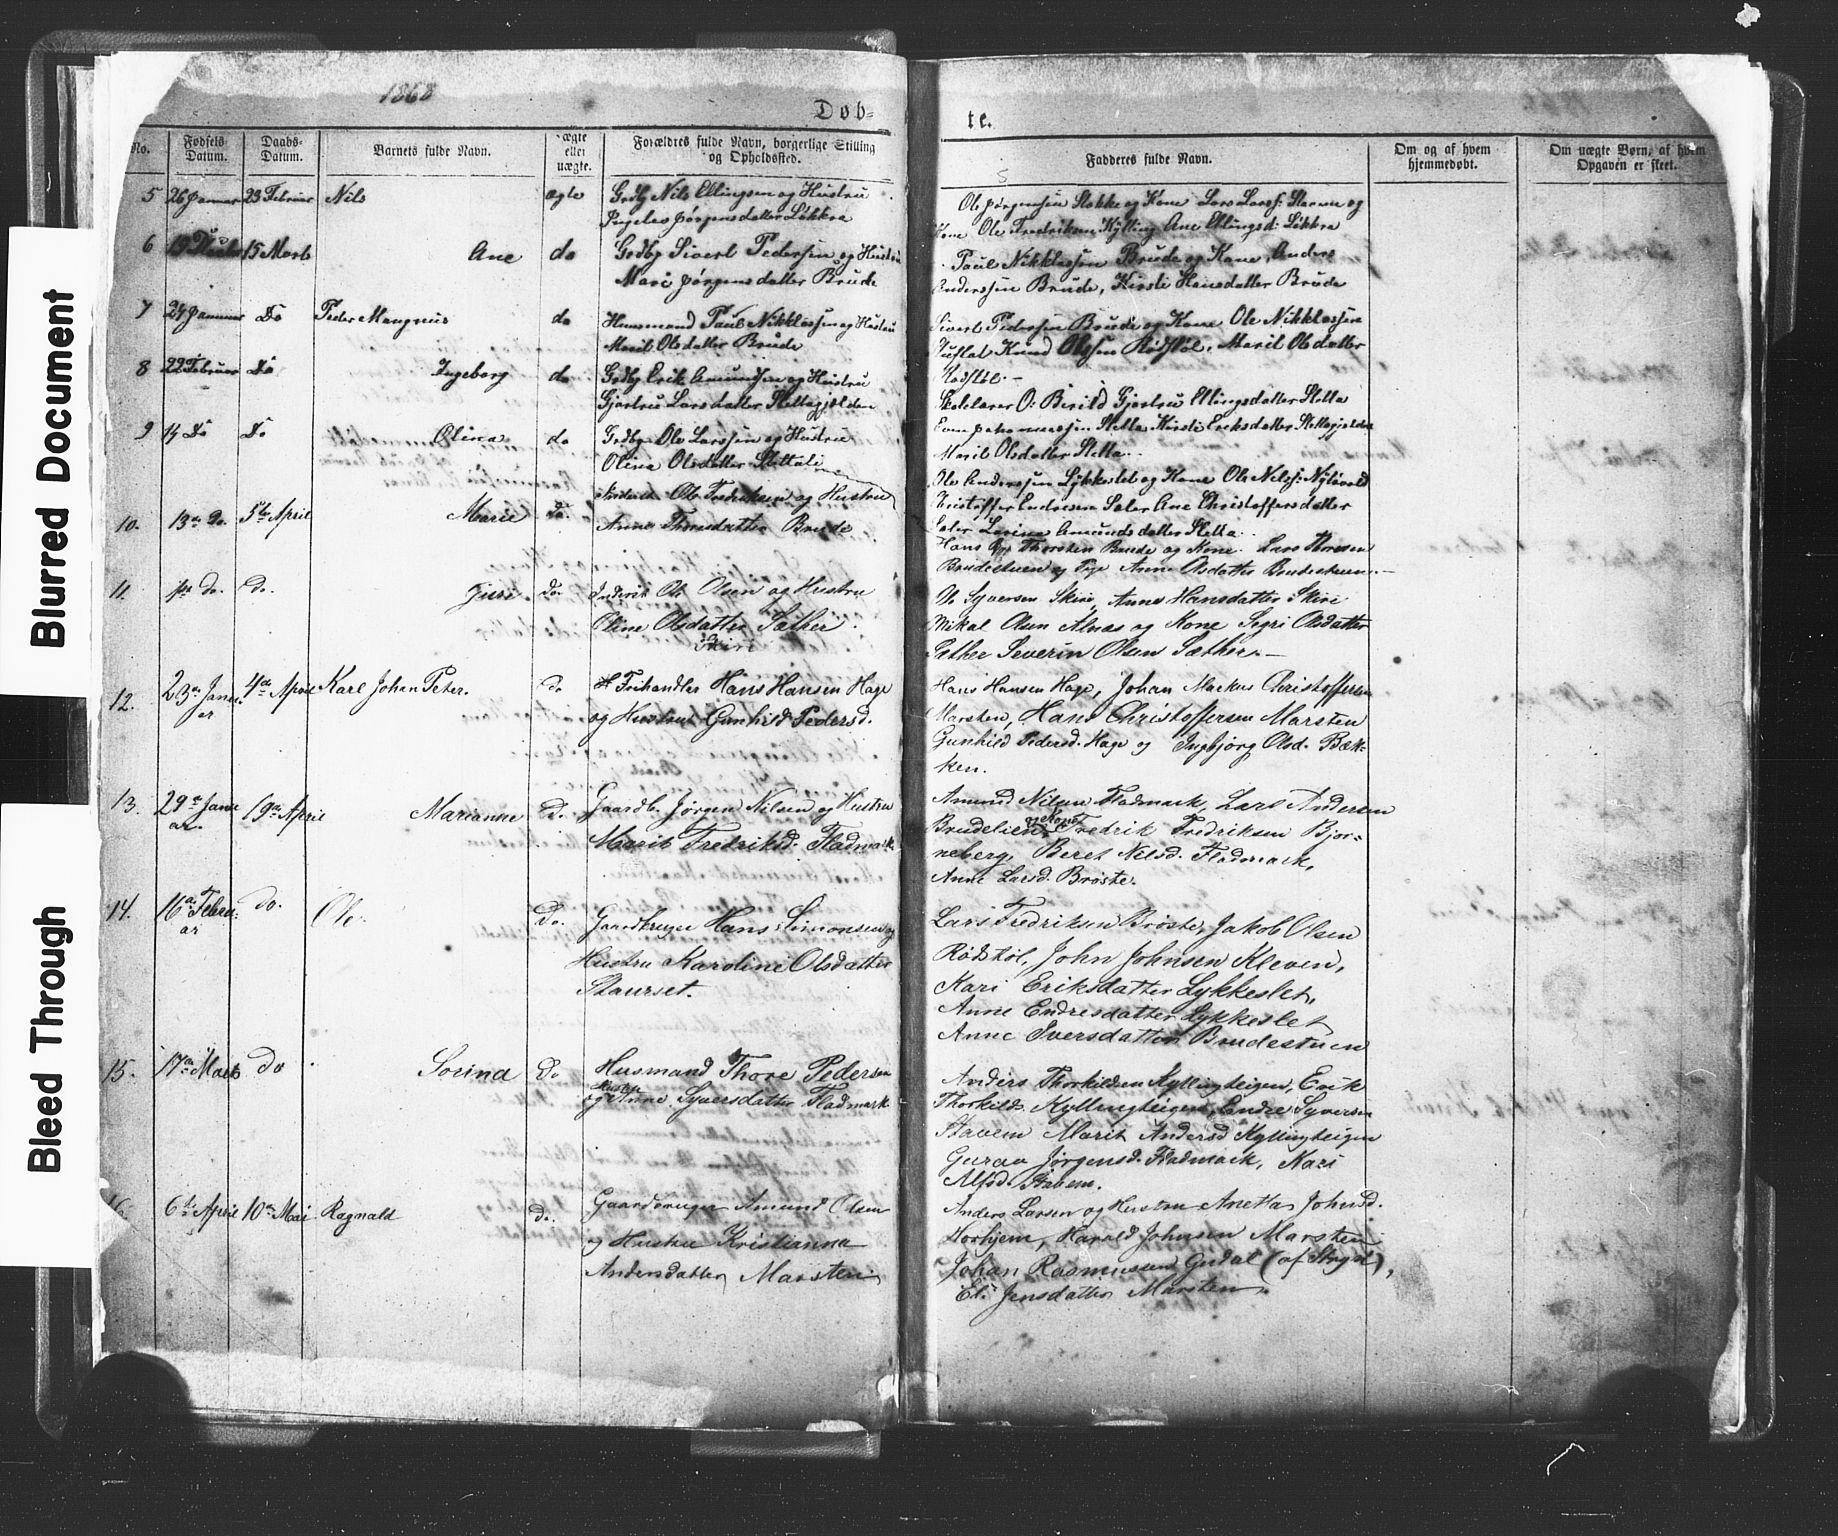 1868
Døb=
te.
No.
Fødsels Datum.
Daabs- Datum.
Barnets fulde Navn.
ægte eller uægte.
Forældres fulde Navn, borgerlige Stilling og Opholdssted.
Fadderes fulde Navn.
Om og af hvem hjemmedøbt.
Om uægte Børn, af hvem Opgaven er skeet.
5 26 Januar 23 Februar Nils ægte Grdbg Nils Ellingsen og Hustru
Jørgensdatter Løkkra
Ole Jørgensen Stokke og Kone Lars Larss: Staven og
Kone Ole Fredriksen Kylling Ane Ellingsd: Løkkra
6 15 Marts Ane do Grdbg Sivert Pedersen og Hustru
Mari Jørgensdatter Brude
Paul Nikklassen Brude og Kone, Anders
Anderssen Brude, Kirsti Hansdatter Brude
7 24 Januar Do Peder Mangnus do Huusmand Paul Nikklassen og Hustru
Marit Olsdatter Brude
Sivert Pederssen Brude og Kone Ole Nikklassen
Knud Olssen Rødstøl, Marit Olsdatter
Rødstøl.
8 22 Februar Do Ingeborg do Grdbg Erik Amundsen og Hustru
Gjertru Larsdatter Slettagjælden
Skolelærer O: Birild Gjertru Ellingsdatter Sletta
Sletta Kirsti Eriksdatter Slettagjelden
Marit Olsdatter Sletta.
9 14 Do Do Olina do Grdbg. Ole Larssen og Hustru
Olina Olsdatter Slettali
Ole Anderssen Lykkeslet og Kone Ole Nilss: Nylivold
Kristoffer Endresen Sæter Ane Christoffersdatter
Sæter Lovina Amundsdatter Sletta.
10. 13de do. 5te April Marie do. Inderst Ole Fredriksen og Hustru
Anne Thoresdatter Brude
Hans Thorsten Brude og Kone. Lars Thoresen
Brudestuen og Anne Olsdatter Brudestuen.
11. 1ste do. do. Guri do. Inderst Ole Olsen og Hustru
Oline Olsdatter Sæther.
Skiri
Ole Syversen Skiri, Anne Hansdatter Skiri
Mikal Olsen Alnæs og Kone Segri Olsdatter
Sæther Severin Olsen Sæther.
12. 23de Januar 4de April Karl Johan Peter. do Frihandler Hans Hansen Hage
og Hustru Gunhild Pedersd.
Hans Hansen Hage, Johan Markus Christoffersen
Marsten, Hans Christoffersen Marsten
Gunhild Pedersd. Hage og Ingbjørg Olsd. Bæk-
ken.
13. 29de Januar. 19de April Marianne Do. Gaardb. Jørgen Nilsen og Hustru
Marit Fredriksd. Fladmark
Amund Nilsen Fladmark, Lars Andersen
Brudelien og Kone Fredrik Fredriksen Bjor-
neberg, Beret Nilsd. Fladmark,
Anne Larsd. Brøste.
14. 16de Februar do. Ole. Do. Gaardbruger Hans Simonsen og
Hustru Karoline Olsdatter
Staurset.
Lars Fredriksen Brøste, Jakob Olsen
Rødstøl, John Johnsen Kleven,
Kari Eriksdatter Lykkeslet,
Anne Endresdatter Lykkeslet
Anne Iversdatter Brudestuen
15. 17de Marts Do Sorina Do Husmand Thore Pedersen
og Hustru Anne Syversdatter Fladmark
Anders Thorkildsen Kyllingteigen, Erik
Thorkilds. Kyllingteigen, Endre Syversen
Stavem Marit Andersd Kyllingteigen
Guraa Jørgensd. Fladmark, Kari
Alfsd. Stavem.
16. 6te April 10de Mai Ragnald do. Gaardbruger Amund Olsen
og Hustru Kristianna
Andersdatter Marsten
Anders Larsen og Hustru Anetta Johnsd.
Horhjem, Harald Johnsen Marsten
Johan Rasmussen Gudal (af Stryn),
Eli Jensdatter Marsten.
Blurred Document
Bleed Through